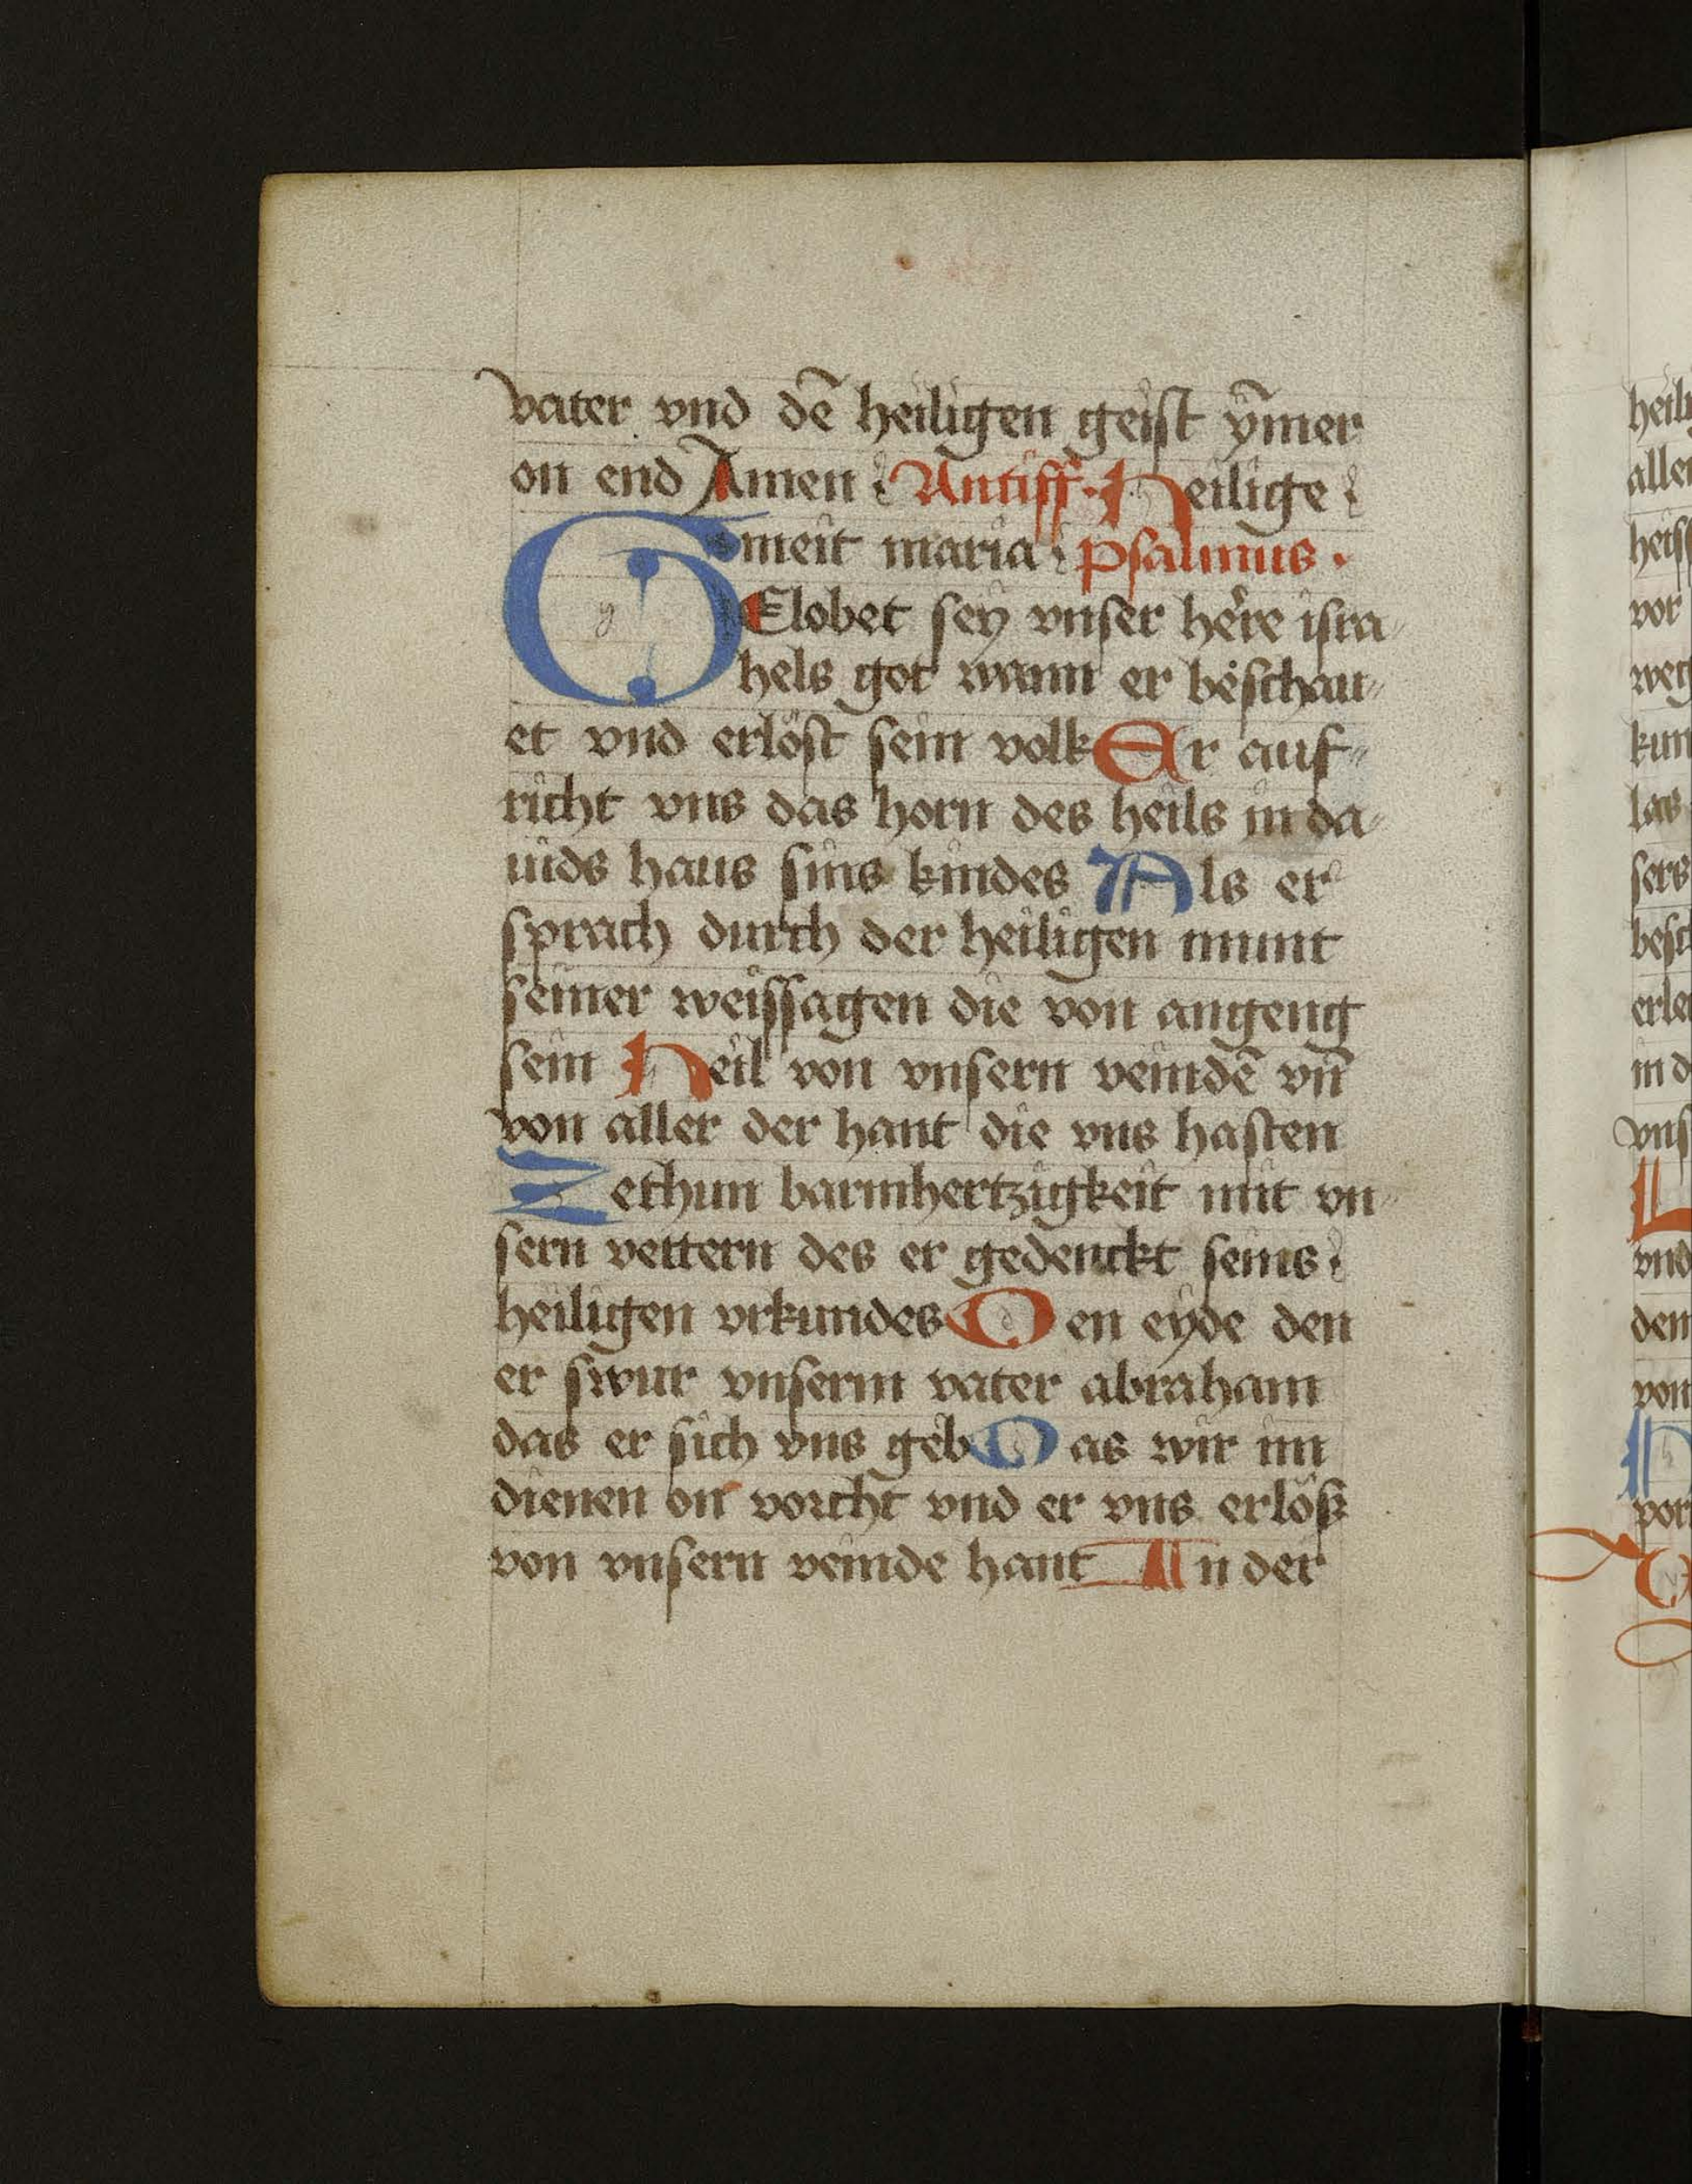 vater vnd dē heiligen geist ȳmer
on end Amen Antiff · Heilige
meit maria psalmus ·
GElobet sey vnser here isra
hels got wann er beschau
et vnd erlöst sein volk Er auf
richt vns das horn des heils in da
uids haus sins kindes Als er
sprach durch der heiligen munt
seiner weissagen die von angeng
sein Heil von vnsern veindē vn̄
von aller der hant die vns hasten
Zethun barmhertzigkeit mit vn
sern vettern des er gedenckt seins
heiligen vrkundes Den eyde den
er swur vnserm vater abraham
das er sich vns geb Das wir im
dienen on vorcht vnd er vns erlöß
von vnsern veinde hant In der
heili
aller
heiss
vor
weg
kun
las
sers
besch
erle
in d
vns
L
vnd
dem
von
H
vor